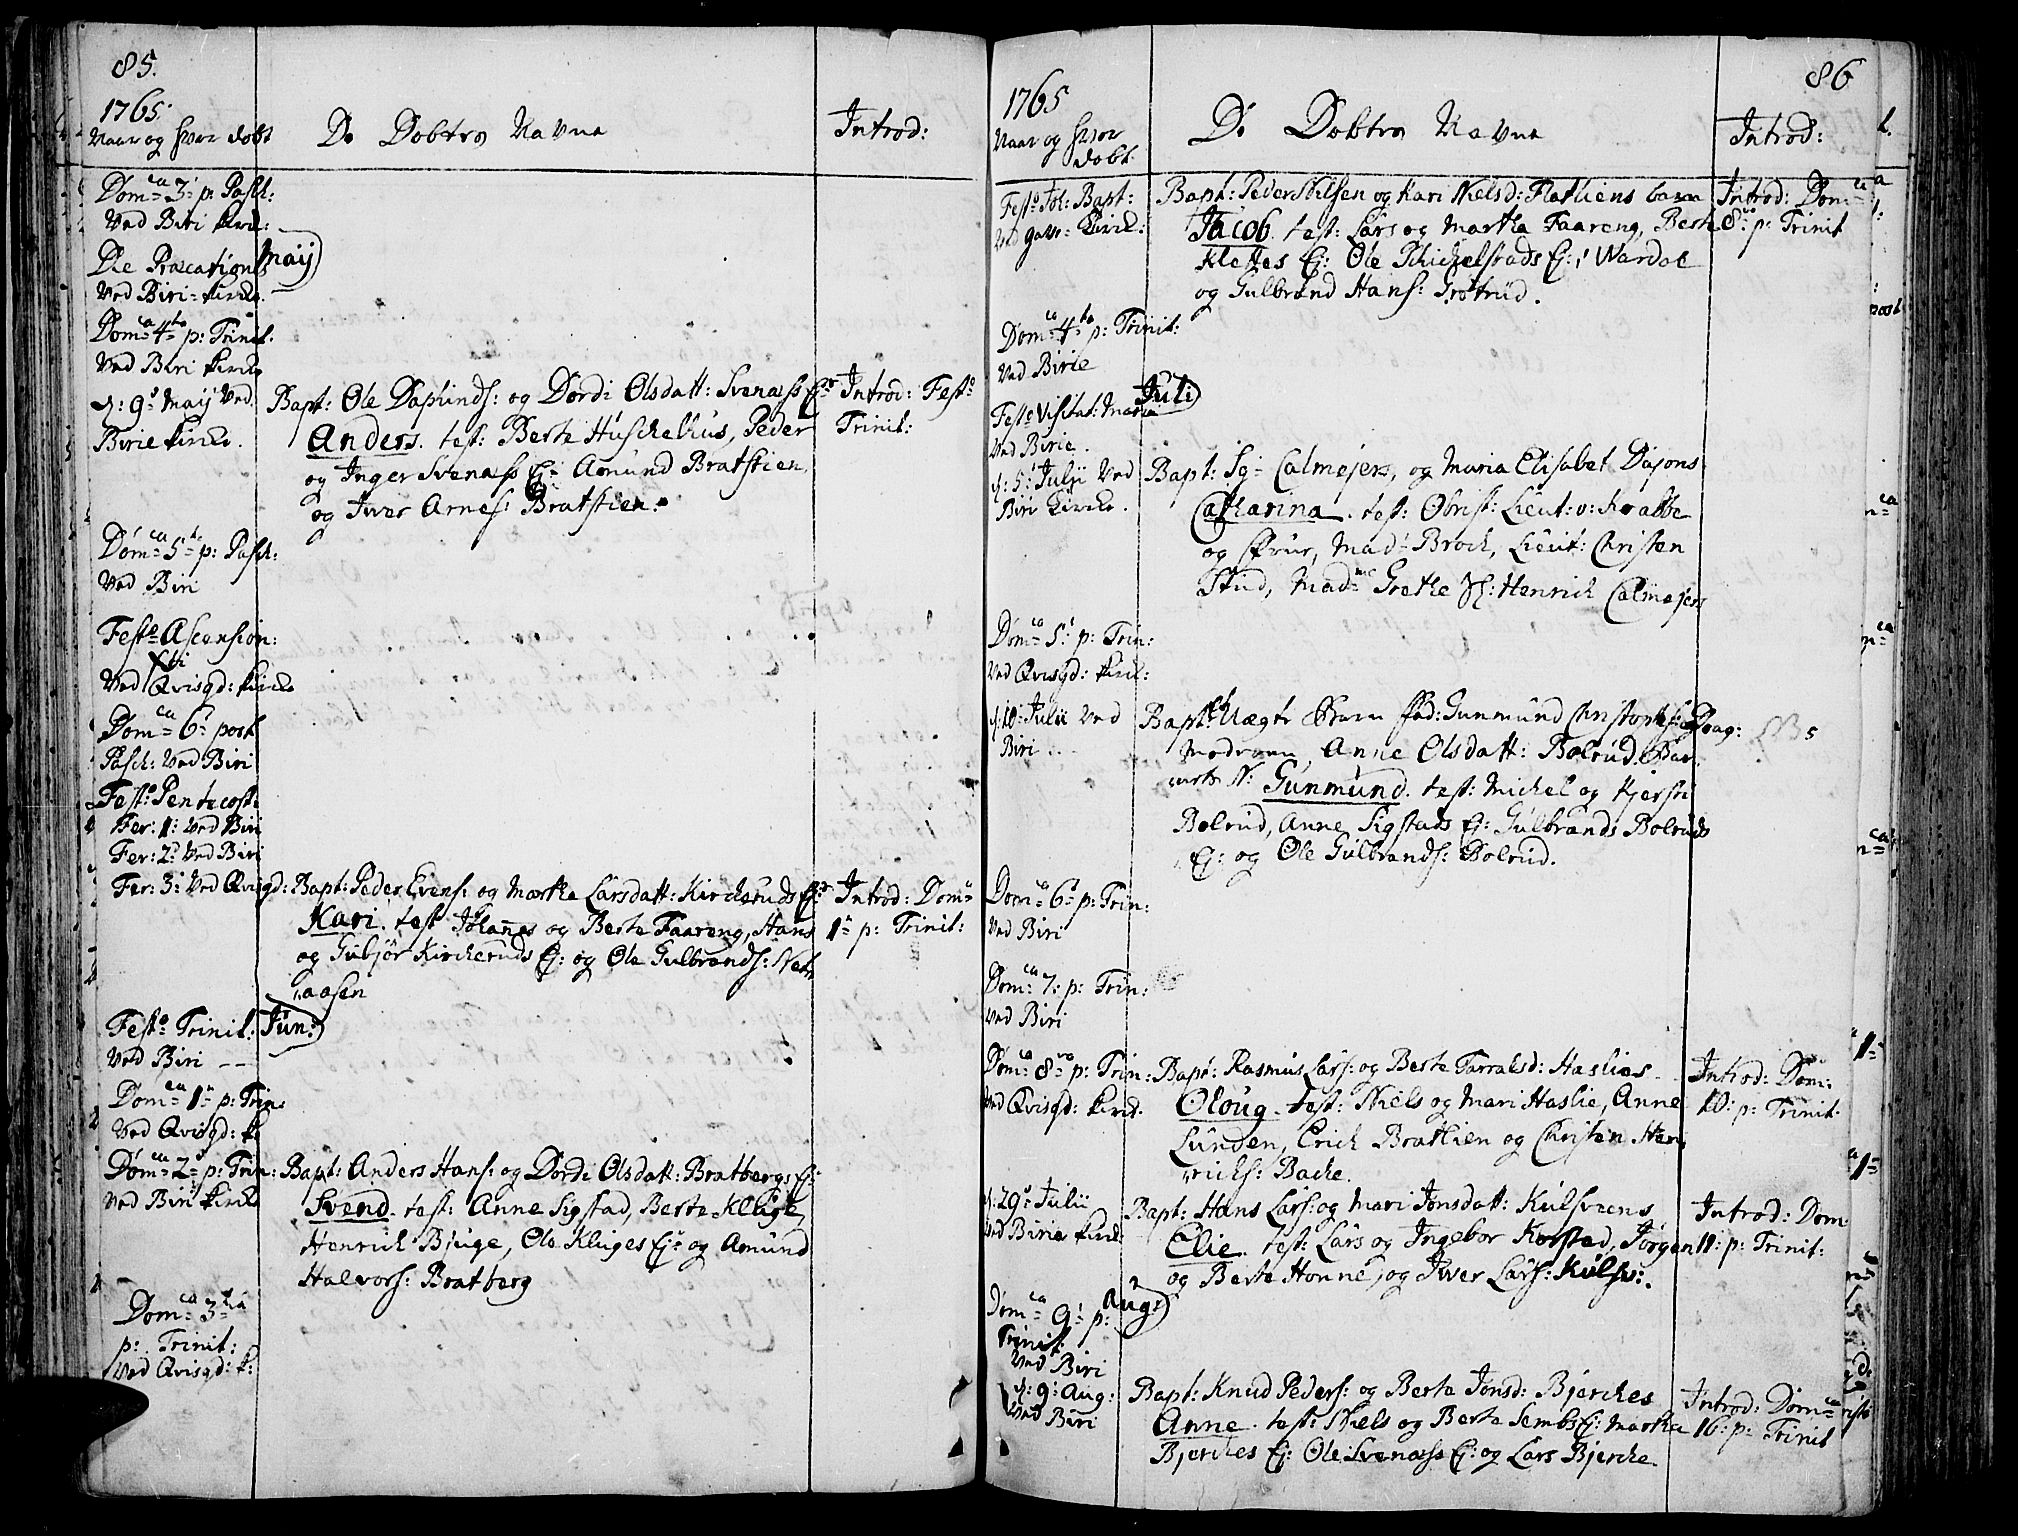 85.
1765.
Naar og hvor døbt
De Døbtes Navne
Introd:
Dom:ca 3: p: Pasch:
Ved Biri Kirke:
Maij
Die Præcationis
Ved Biri-Kirke.
Dom:ca 4:to p: Trinit.
Ved Biri Kirke
d: 9: Maij Ved
Birie Kirke.
Bapt: Ole Daplinds: og Dordi Olsdatt: Svenæss Ej:
Anders. test: Berte Huschelhus, Peder
og Inger Svenæss Ej: Amund Bratstien,
og Iver Arnes: Bratstien.
Introd: Festo
Trinit:
Dom:ca 5:te p: Pasch:
Ved Biri
Festo Ascension:
Xti
Ved Qvisgd: Kirke
Dom:ca 6: post
Pasch: Ved Biri
Festo Pentecost:
Fer: 1: Ved Biri
Fer: 2: Ved Biri
Fer: 3: Ved Qvisgd:
Bapt: Peder Evens: og Martha Larsdatt: Kircheruds Ej:
Kari. test Johanes og Berte Faareng, Hans
og Gubjør Kircheruds Ej: og Ole Gulbrands:
aasen
Introd: Dom:
1: p: Trinit:
Festo Trinit:
Jun:
Ved Biri
Dom:ca 1: p: Trin:
Ved Qvisgd: K:
Dom:ca 2: p: Trin:
Ved Biri Kirke
Bapt: Anders Hans: og Dordi Olsdatt: Bratbergs Ej:
Svend. test: Anne Sigstad, Berte Kluge,
Henrich Bjuge, Ole Kluges Ej: og Amund
Halvors: Bratberg
Dom:ca 3:tia
p: Trinit:
Ved Qvisgd: K:
86
1765
Naar og hvor
døbt.
De Døbtes Navne
Introd:
Festo Joh: Bapt:
Kirke:
Bapt: Peder Nilsen og Kari Nielsd: Flatliens barn
Jacob. test: Lars og Martha Faareng, Berte
Klettes Ej: Ole Ej: Wardal
og Gulbrand Hans: Grøtrud.
Introd: Dom:ca
8: p: Trinit
Dom:ca 4:to p: Trinit:
Ved Birie
Juli
Festo Visitat: Mariæ
Ved Birie.
d: 5: Julii Ved
Biri Kirke.
Bapt: Sg: Calmejers, og Maria Elisabet Dajons
Catharina. test: Obrist: Lieut: v: Krabbe
og Frue, Mad: Broch, Lieut: Christen
Stud, Madme Grethe Sl: Henrich Calmejers
Dom:ca 5: p: Trin:
Ved Qvisgd: Kirk:
d: 10: Julii Ved
Biri
Bapt: Uægte Barn Fad: Gunmund Christophs:
Moderen, Anne Olsdatt: Bolrud. Bar
nets N: Gunmund. test: Michel og Kjersti
Bolrud, Anne Sigstads Ej: Gulbrands Bolruds
Ej: og Ole Gulbrands: Bolrud.
Dom:ca 6: p: Trin:
Ved Biri
Dom:ca 7: p: Trin:
Ved Biri
Dom:ca 8:va p: Trin:
Ved Qvisgd: Kirk.
Bapt: Rasmus Lars: og Berte Tarraldsd: Haslies
Oloug. test: Niels og Mari Haslie, Anne
Lunden, Erich Bratlien og Christen Hen
richs: Bache.
Introd: Dom:
10: p: Trinit:
d: 29: Julii
Ved Birie Kirk:
Bapt: Hans Lars: og Mari Jonsdatt: Kulsveens
Elie. test: Lars og Ingebor Korstad, Jørgen
og Berte Honne, og Iver Lars: Kulsv:.
Introd: Dom
11: p: Trinit:
Aug:
Dom:ca 9: p:
Trinit:
Ved Biri
d: 9: Aug:
Ved Biri
Bapt: Knud Peders: og Berte Jonsd: Bjerches
Anne. test: Niels og Berte Sembs Ej: Martha
Bjerches Ej: Ole Svenæss Ej: og Lars Bjerche.
Introd: Dom:ca
16: p: Trinit